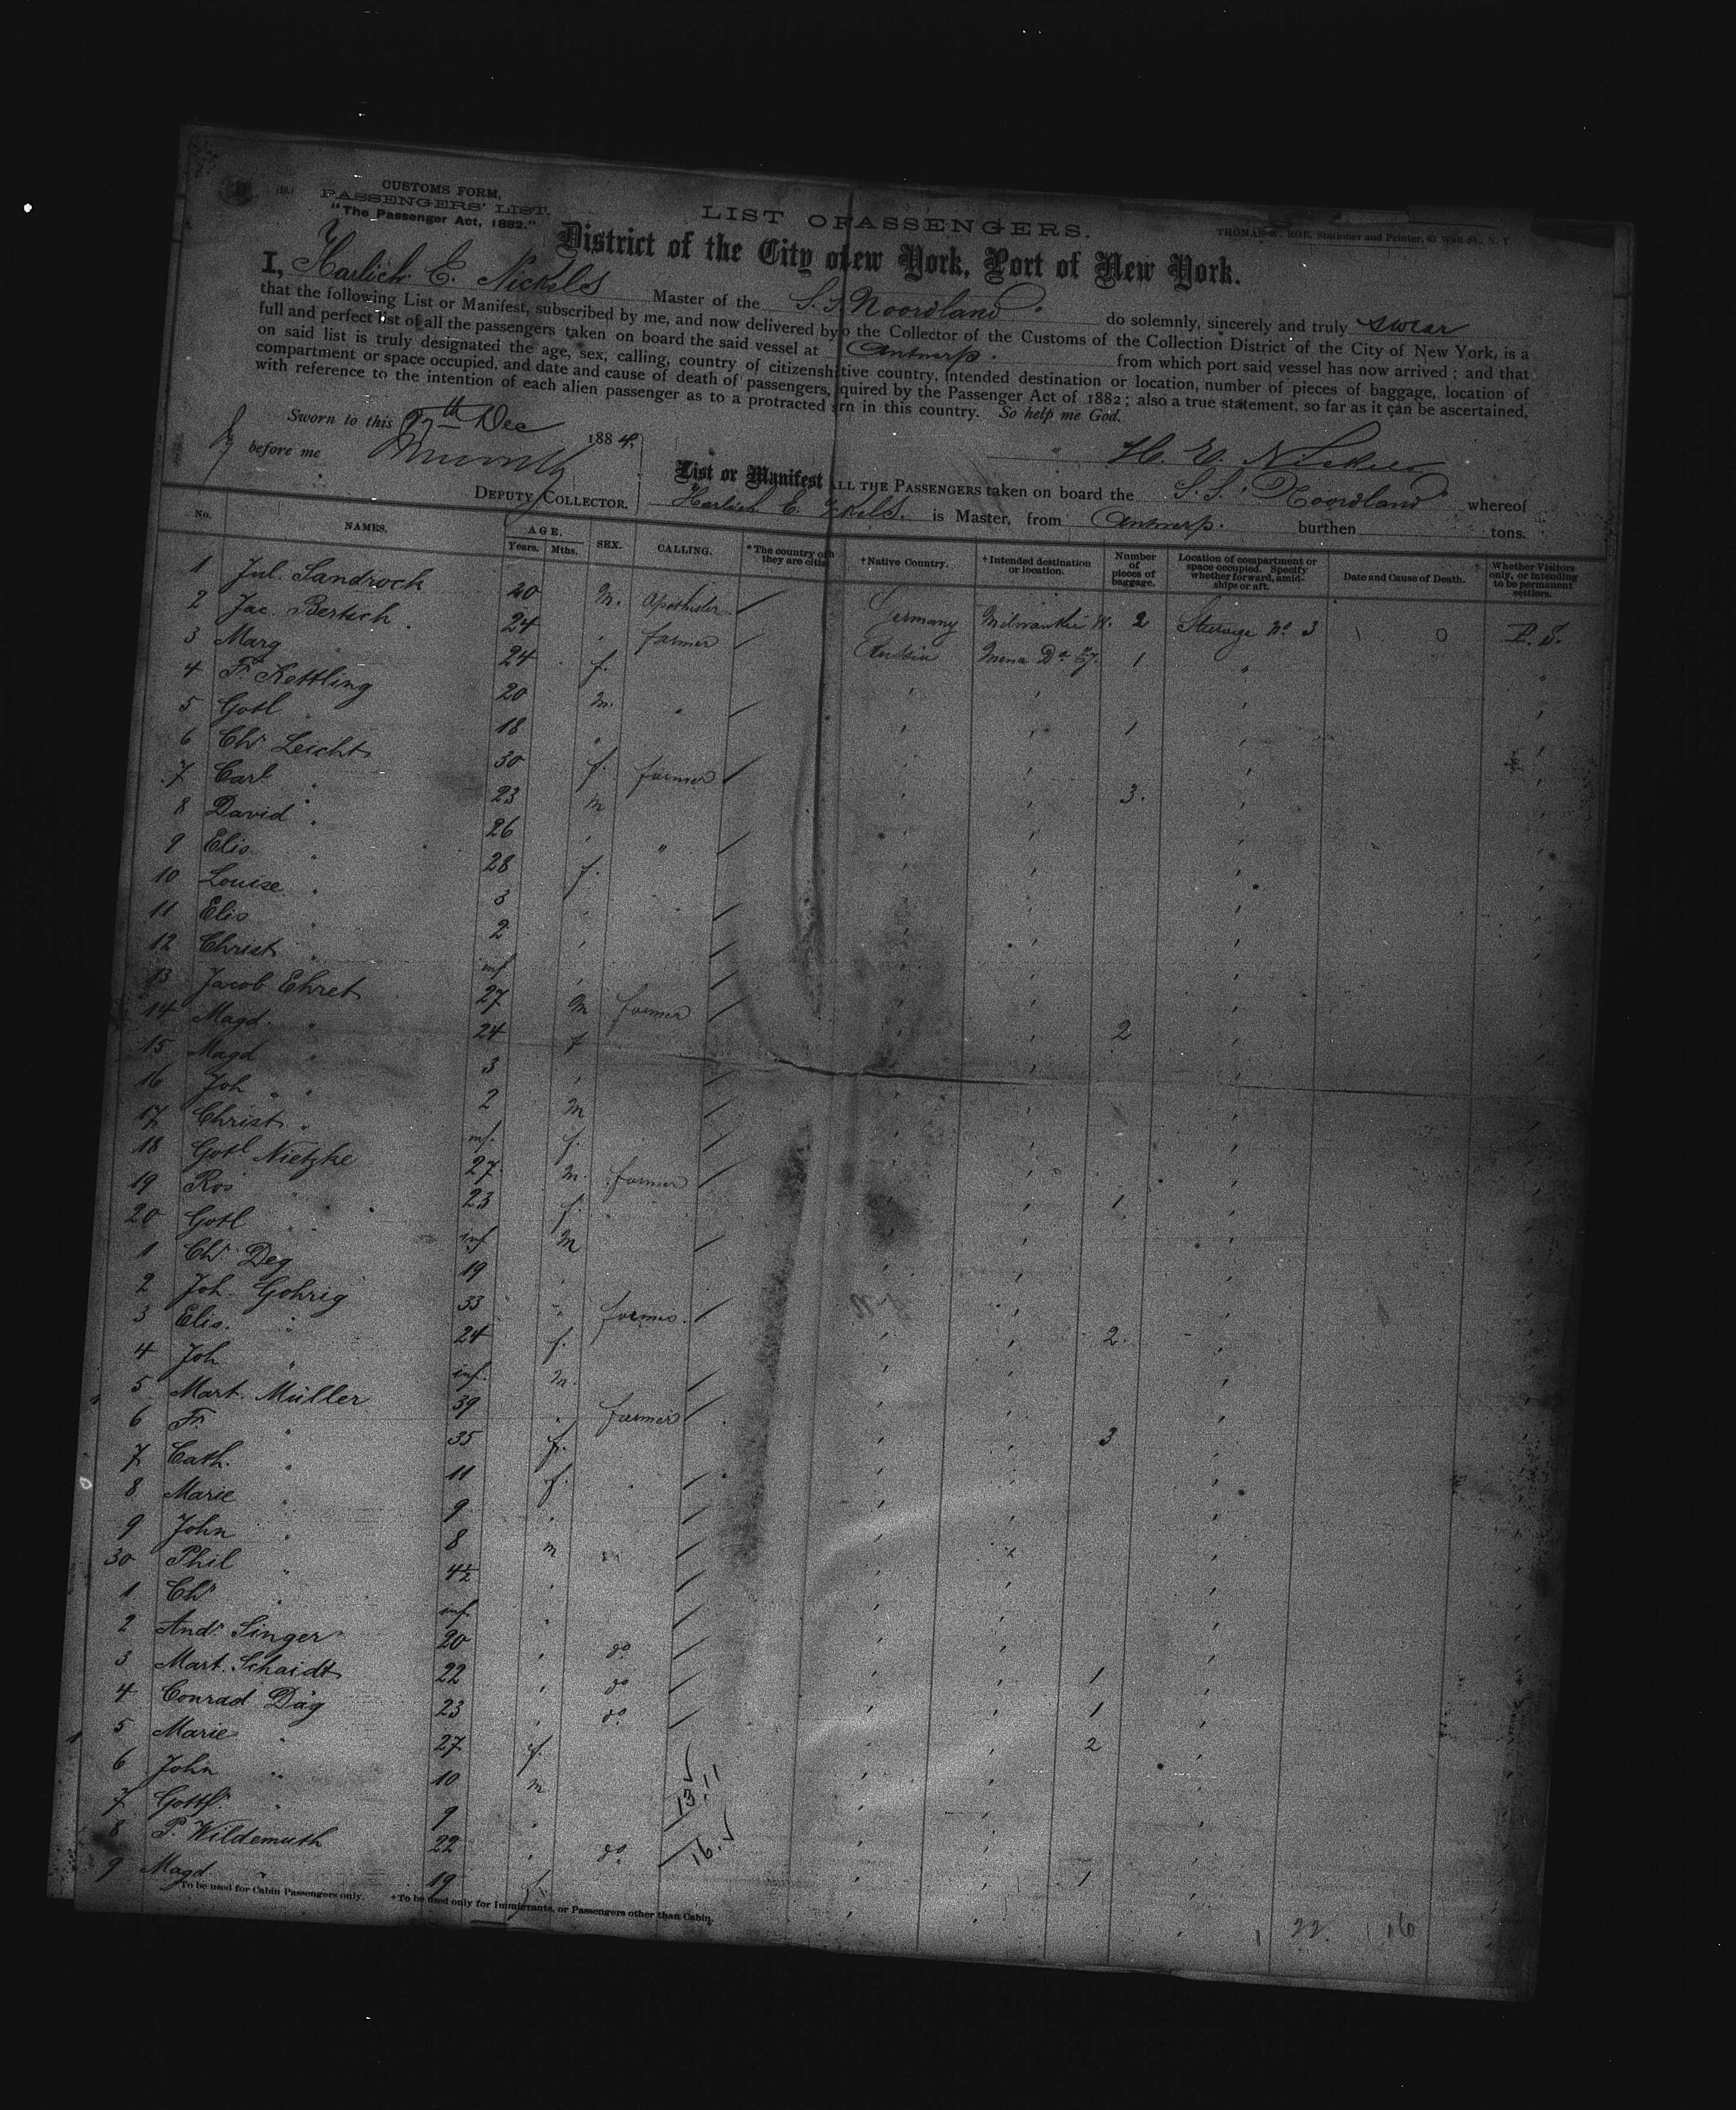 CUSTOMS FORM,
PASSENGERS' LIST.
"The Passenger Act, 1882."
LIST OF PASSENGERS.
THOMAS HOE, Stationer and Printer, Wall St., N. Y.
District of the City of New York, Port of New York.
I, Harlich E. Nickels Master of the S.S. Noordland do solemnly, sincerely and truly swear
that the following List or Manifest, subscribed by me, and now delivered by to the Collector of the Customs of the Collection District of the City of New York, is a
full and perfect list of all the passengers taken on board the said vessel at Antwerp. from which port said vessel has now arrived; and that
on said list is truly designated the age, sex, calling, country of citizenship tive country, intended destination or location, number of pieces of baggage, location of
compartment or space occupied, and date and cause of death of passengers, quired by the Passenger Act of 1882; also a true statement, so far as it can be ascertained,
with reference to the intention of each alien passenger as to a protracted rn in this country. So help me God.
Sworn to this th Dec 1884
before me
DEPUTY COLLECTOR.
List or Manifest ALL THE PASSENGERS taken on board the S.S. Noordland whereof
Harlich E. ckels. is Master, from Antwerp. burthen tons.
No. NAMES. AGE. Years. Mths. SEX. CALLING. *The country of they are citiz †Native Country. †Intended destination or location. Number of pieces of baggage. Location of compartment or space occupied. Specify whether forward, amidships or aft. Date and Cause of Death. Whether Visitors only, or intending to be permanent settlers.
1 Jul. Sandrock 20 M. / Germany Milwaukee W. 2 Steerage No 3 \ 0 P. S.
2 Jac. Bertsch 24 " farmer / Russia Mena Da 1 "
3 Marg " 24 f.
4 Fr. Kettling 20 m. " / 1
5 Gotl " 18 "
6 Chr Leicht 30 f. farmer / 3.
7 Carl " 23 m
8 David " 26 " " /
9 Elis " 28 f.
10 Louise " 3 " /
11 Elis " 2 " /
12 Christ " inf " /
13 Jacob Ehret 27 M farmer / 2
14 Magd. " 24 f
15 Magd " 3 " /
16 Joh " 2 M /
17 Christ " inf. f. /
18 Gotl Nietzke 27 M. farmer / 1
19 Ros " 23 f.
20 Gotl " inf M /
1 Chr Deg 19 "
2 Joh. Gohrig 33 " farmer / 2.
3 Elis. " 24 f.
4 Joh " inf. m. /
5 Mart. Müller 39 " farmer / 3
6 Fr. " 35 f.
7 Cath. " 11 f. /
8 Marie " 9 " /
9 John " 8 m /
30 Phil " 4½ " /
1 Chr " inf " /
2 Andr Singer 20 " do / 1
3 Mart. Schaidt 22 " do / 1
4 Conrad Däg 23 " do / 2
5 Marie " 27 f.
6 John " 10 m
7 Gottf. " 9 "
8 P. Wildemuth 22 " do. / 1
9 Magd " 19 f
13.11
16.
To be used for Cabin Passengers only. *To be used only for Immigrants, or Passengers other than Cabin.
1 22. 16